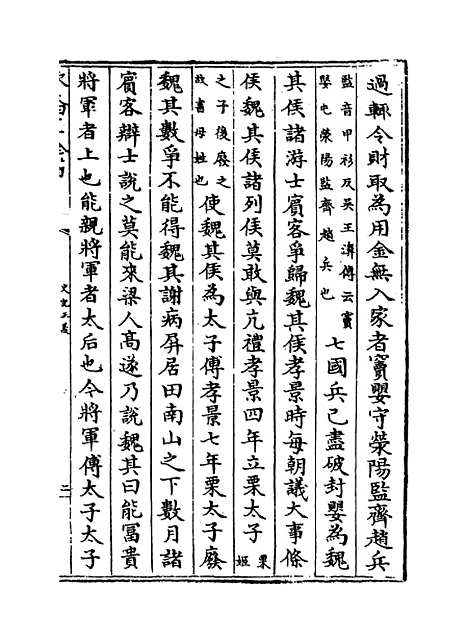 過輙令財取為用金無入家者竇嬰守滎陽監齊趙兵
監音甲衫反吳王濞傳云竇
嬰屯滎陽監齊趙兵也
七國兵已盡破封嬰為魏
其侯諸游士賓客爭歸魏其侯孝景時每朝議大事條
侯魏其侯諸列侯莫敢與亢禮孝景四年立栗太子
栗
姬
之子後廢之
故書母姓也
使魏其侯為太子傅孝景七年栗太子廢
魏其數爭不能得魏其謝病屏居田南山之下數月諸
賓客辯士說之莫能來梁人高遂乃說魏其曰能冨貴
將軍者上也能親將軍者太后也今將軍傅太子太子
史記正義